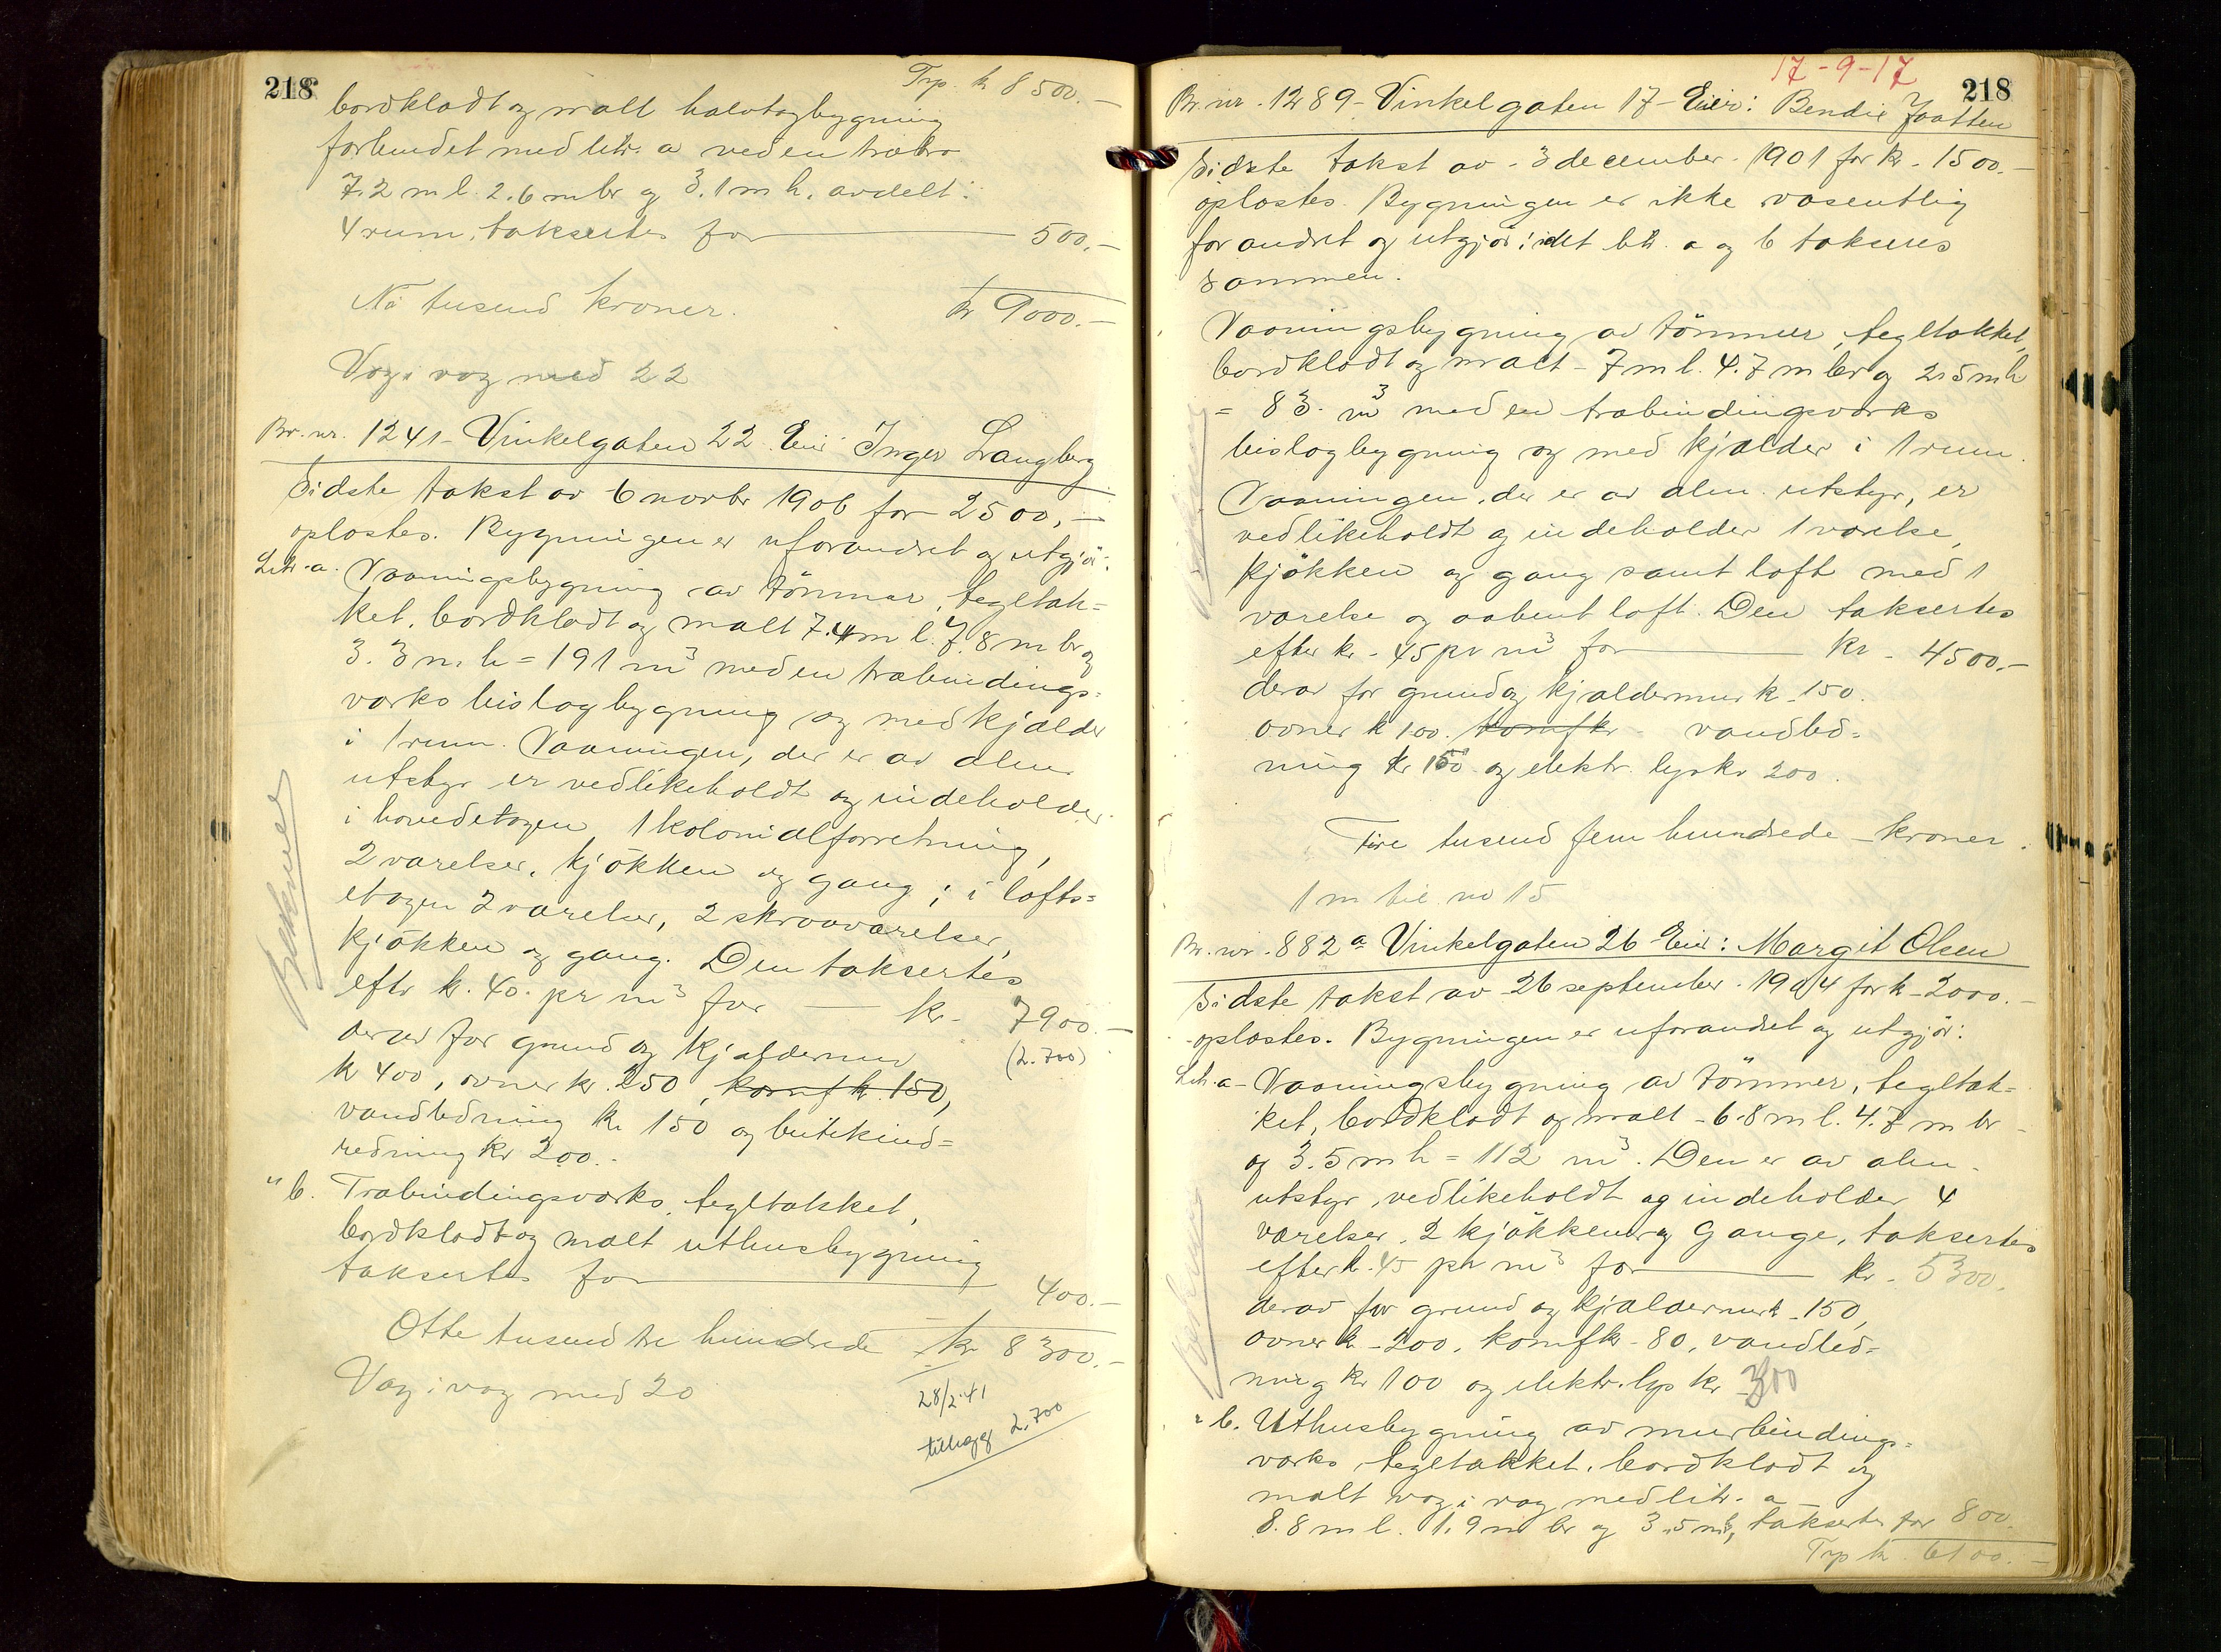 218
Trp. kr 8500.-
bordklædt og malt halvtagbygning
forbundet med litr. a ved en træbro
7.2 m l. 2.6 m br og 3.1 m h. avdelt i
4 rum, taksertes for 500.-
Ni tusend kroner. kr 9000.-
Væg i væg med 22
Br. nr. 1241 - Vinkelgaten 22 Eier Inger Langberg
Sidste takst av 6 novbr 1906 for 2500.-
oplæstes. Bygningen er uforandret og utgjör:
Litr. a. Vaaningsbygning av tömmer, tegltak=
ket, bordklædt og malt 7.4 m l. 7.8 m br og
3.3 m h = 191 m³ med en træbindings=
verks bislagbygning og med kjælder
i 1 rum. Vaaningen, der er av alm.
utstyr er vedlikeholdt og indeholder
i hovedetagen 1 kolonialforretning,
2 værelser, kjökken og gang; i lofts=
etagen 2 værelser, 2 skraaværelser,
kjökken og gang. Den taksertes
eftr kr. 40. pr m³ for kr. 7900.-
derav for grund og kjældermur (2.700)
kr 400, ovner kr. 250, komf kr. 150,
vandledning kr 150 og butikind=
redning kr 200.-
" b. Træbindingsverks, tegltakket,
bordklædt og malt uthusbygning
taksertes for 400.-
Otte tusend tre hundrede kr 8300.-
Væg i væg med 20
28/2 41
tillegg 2.700
17-9-17
218
Br. nr. 1289 - Vinkelgaten 17 - Eier: Bendix Jaatten
Sidste takst av 3 december 1901 for kr. 1500.-
oplæstes. Bygningen er ikke væsentlig
forandret og utgjör: idet litr. a og b takseres
sammen.
Vaaningsbygning av tömmer, tegltakket,
bordklædt og malt - 7 m l. 4.7 m br og 2.5 m h
= 83. m³ med en træbindingsverks
bislagbygning og med kjælder i 1 rum.
Vaaningen, der er av alm. utstyr, er
vedlikeholdt og indeholder 1 værelse,
kjökken og gang samt loft med 1
værelse og aabent loft. Den taksertes
efter kr. 45 pr m³ for kr. 4500.-
derav for grund og kjældermur kr. 150.
ovner kr 100. komf kr - vandled=
ning kr 150 og elektr. lys kr 200.
Fire tusend fem hundrede kroner.
1 m til no 15
Br. nr. 882a Vinkelgaten 26 Eier: Margit Olsen
Sidste takst av 26 september 1904 for kr. 2000.-
oplæstes. Bygningen er uforandret og utgjör:
Litr. a - Vaaningsbygning av tömmer, tegltak=
ket, bordklædt og malt - 6.8 m l. 4.7 m br
og 3.5 m h = 112 m³. Den er av alm.
utstyr, vedlikeholdt og indeholder 4
værelser, 2 kjökken og gange, taksertes
efter kr. 45 pr m³ for kr. 5300.
derav for grund og kjældermur kr. 150,
ovner kr. 200, komf kr. 80, vandled=
ning kr 100 og elektr. lys kr 300
" b. Uthusbygning av murbindings=
verks, tegltakket, bordklædt og
malt væg i væg med litr. a
8.8 m l. 1.9 m br og 3.5 m h, taksertes for 800.
Trp kr. 6100.-